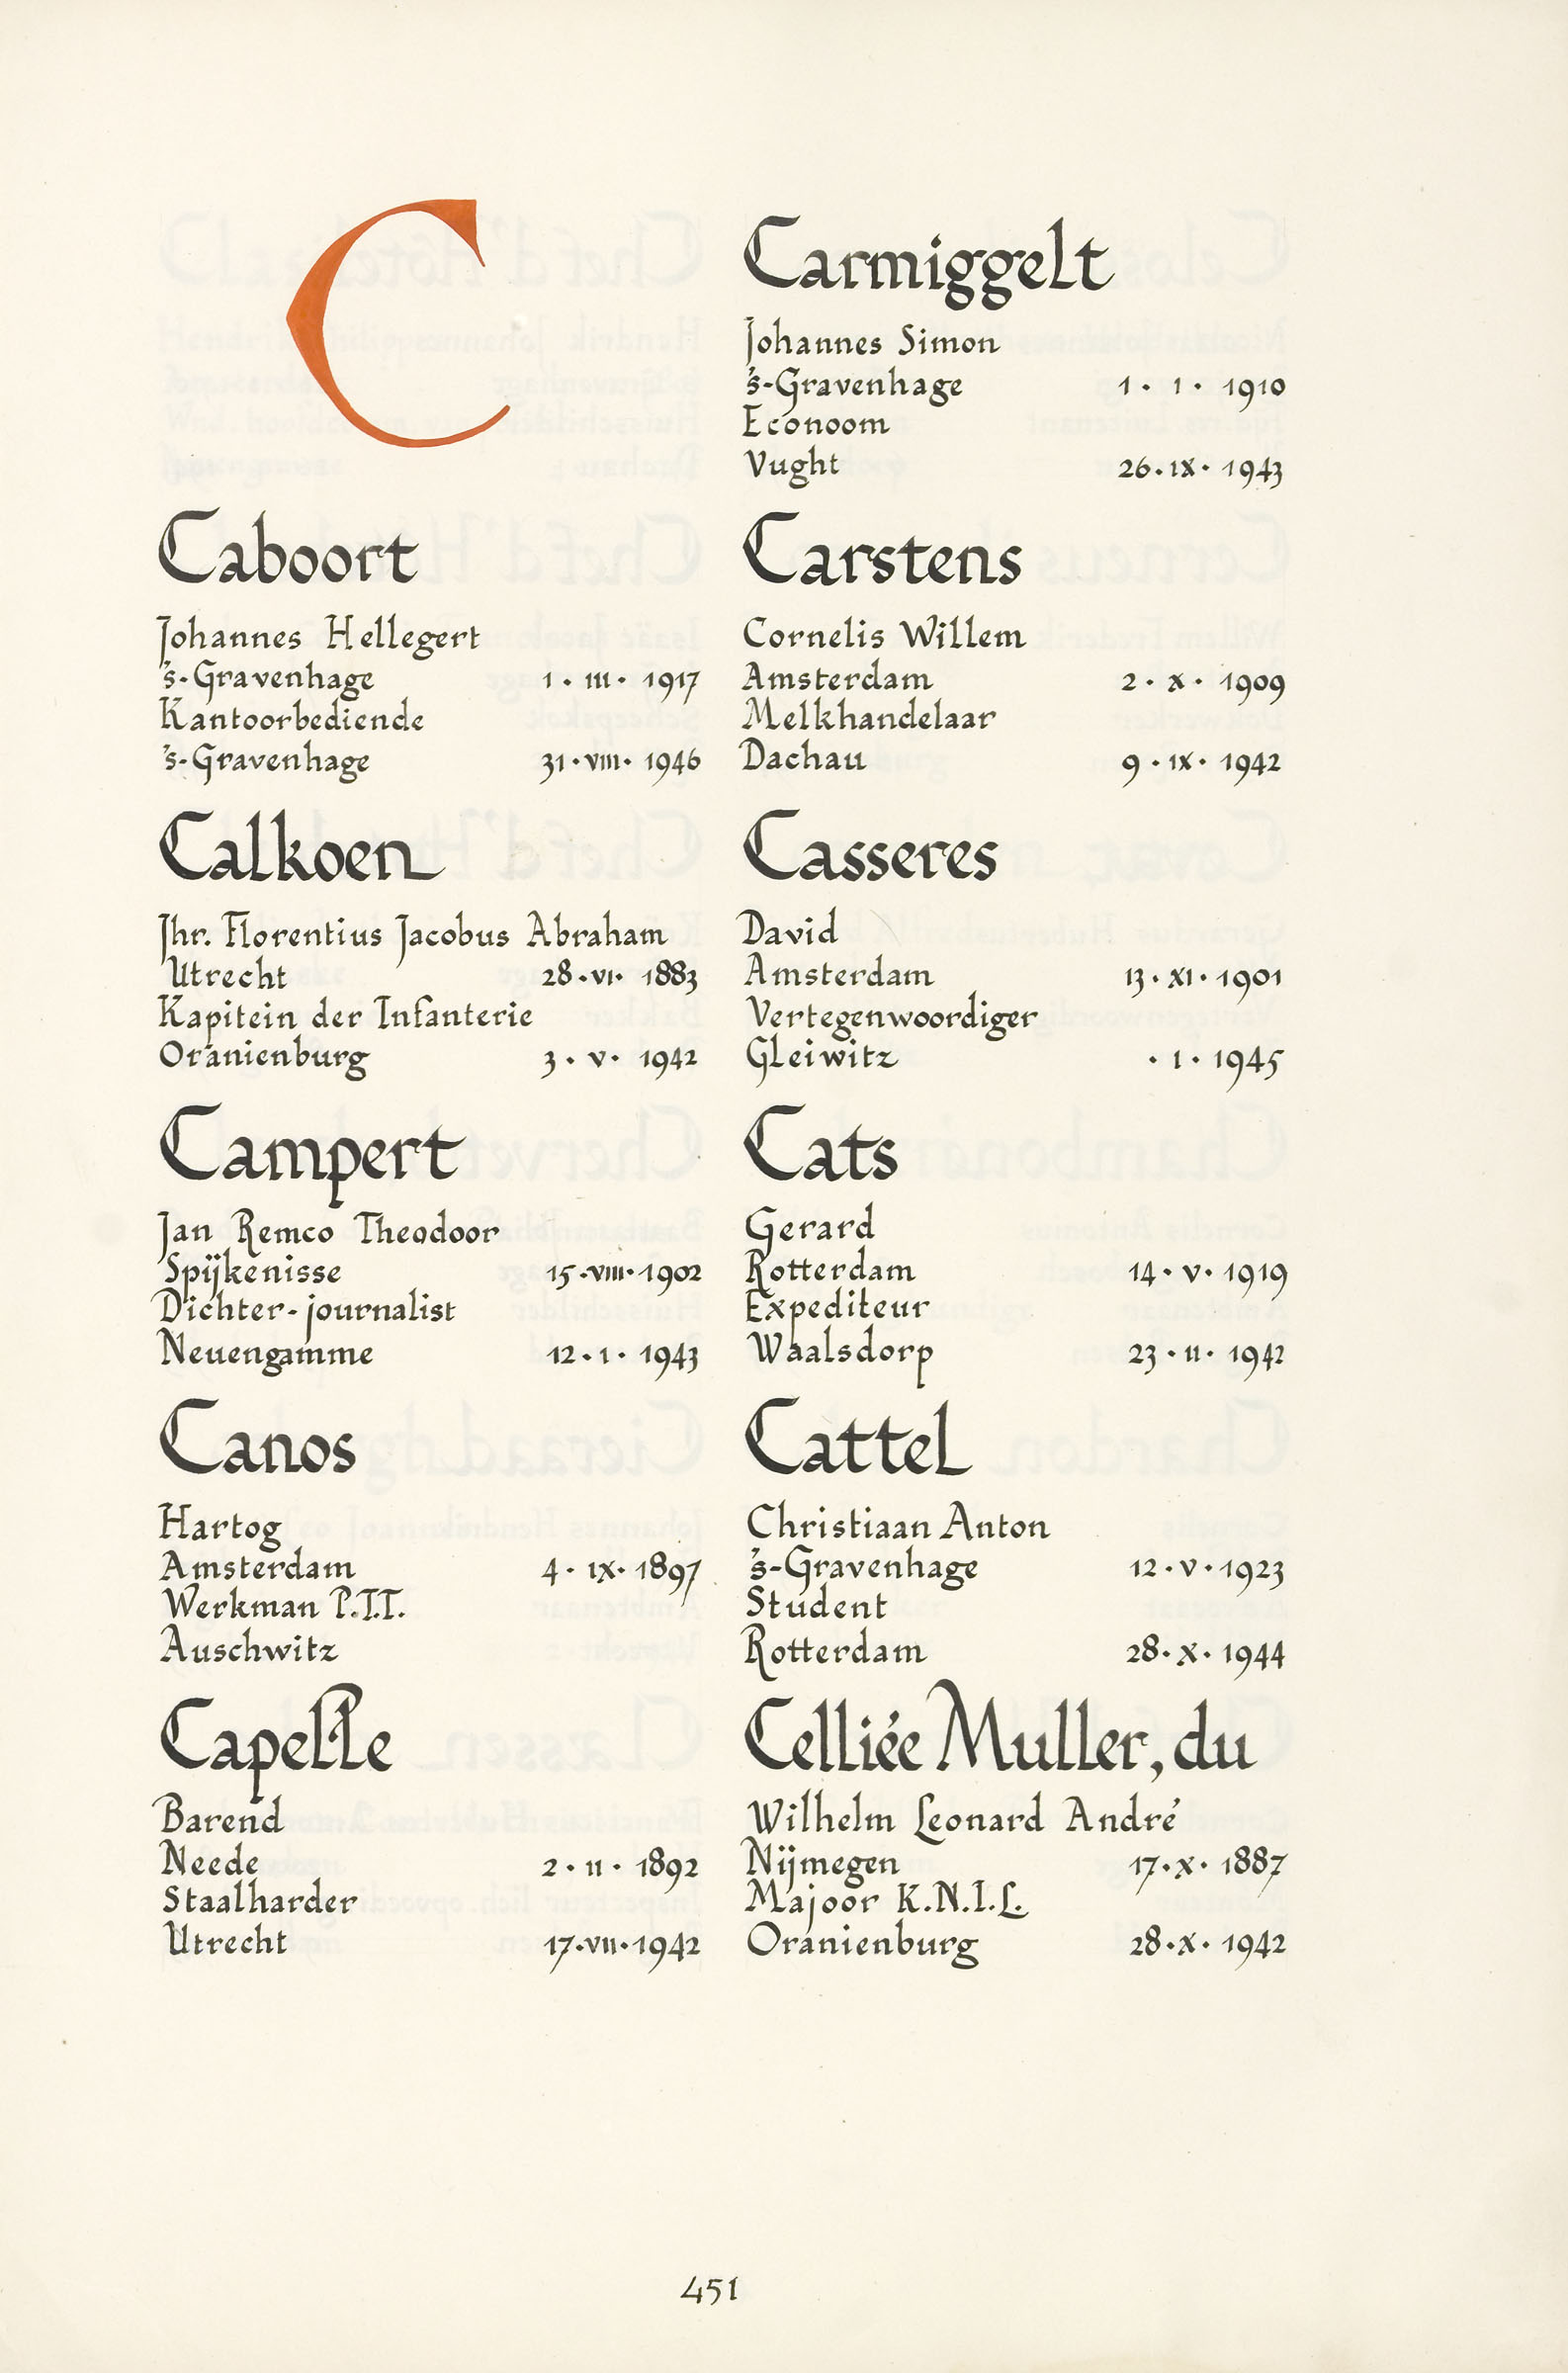 C
Caboort
Johannes Hellegert
's-Gravenhage 1 · III · 1917
Kantoorbediende
's-Gravenhage 31 · VIII · 1946
Calkoen
Jhr. Florentius Jacobus Abraham
Utrecht 28 · VI · 1883
Kapitein der Infanterie
Oranienburg 3 · V · 1942
Campert
Jan Remco Theodoor
Spijkenisse 15 · VIII · 1902
Dichter-journalist
Neuengamme 12 · 1 · 1943
Canos
Hartog
Amsterdam 4 · IX · 1897
Werkman P.T.T.
Auschwitz
Capelle
Barend
Neede 2 · II · 1892
Staalharder
Utrecht 17 · VII · 1942
Carmiggelt
Johannes Simon
's-Gravenhage 1 · 1 · 1910
Econoom
Vught 26 · IX · 1943
Carstens
Cornelis Willem
Amsterdam 2 · X · 1909
Melkhandelaar
Dachau 9 · IX · 1942
Casseres
David
Amsterdam 13 · XI · 1901
Vertegenwoordiger
Gleiwitz · 1 · 1945
Cats
Gerard
Rotterdam 14 · V · 1919
Expediteur
Waalsdorp 23 · II · 1942
Cattel
Christiaan Anton
's-Gravenhage 12 · V · 1923
Student
Rotterdam 28 · X · 1944
Celliée Muller, du
Wilhelm Leonard André
Nijmegen 17 · X · 1887
Majoor K.N.I.L.
Oranienburg 28 · X · 1942
451